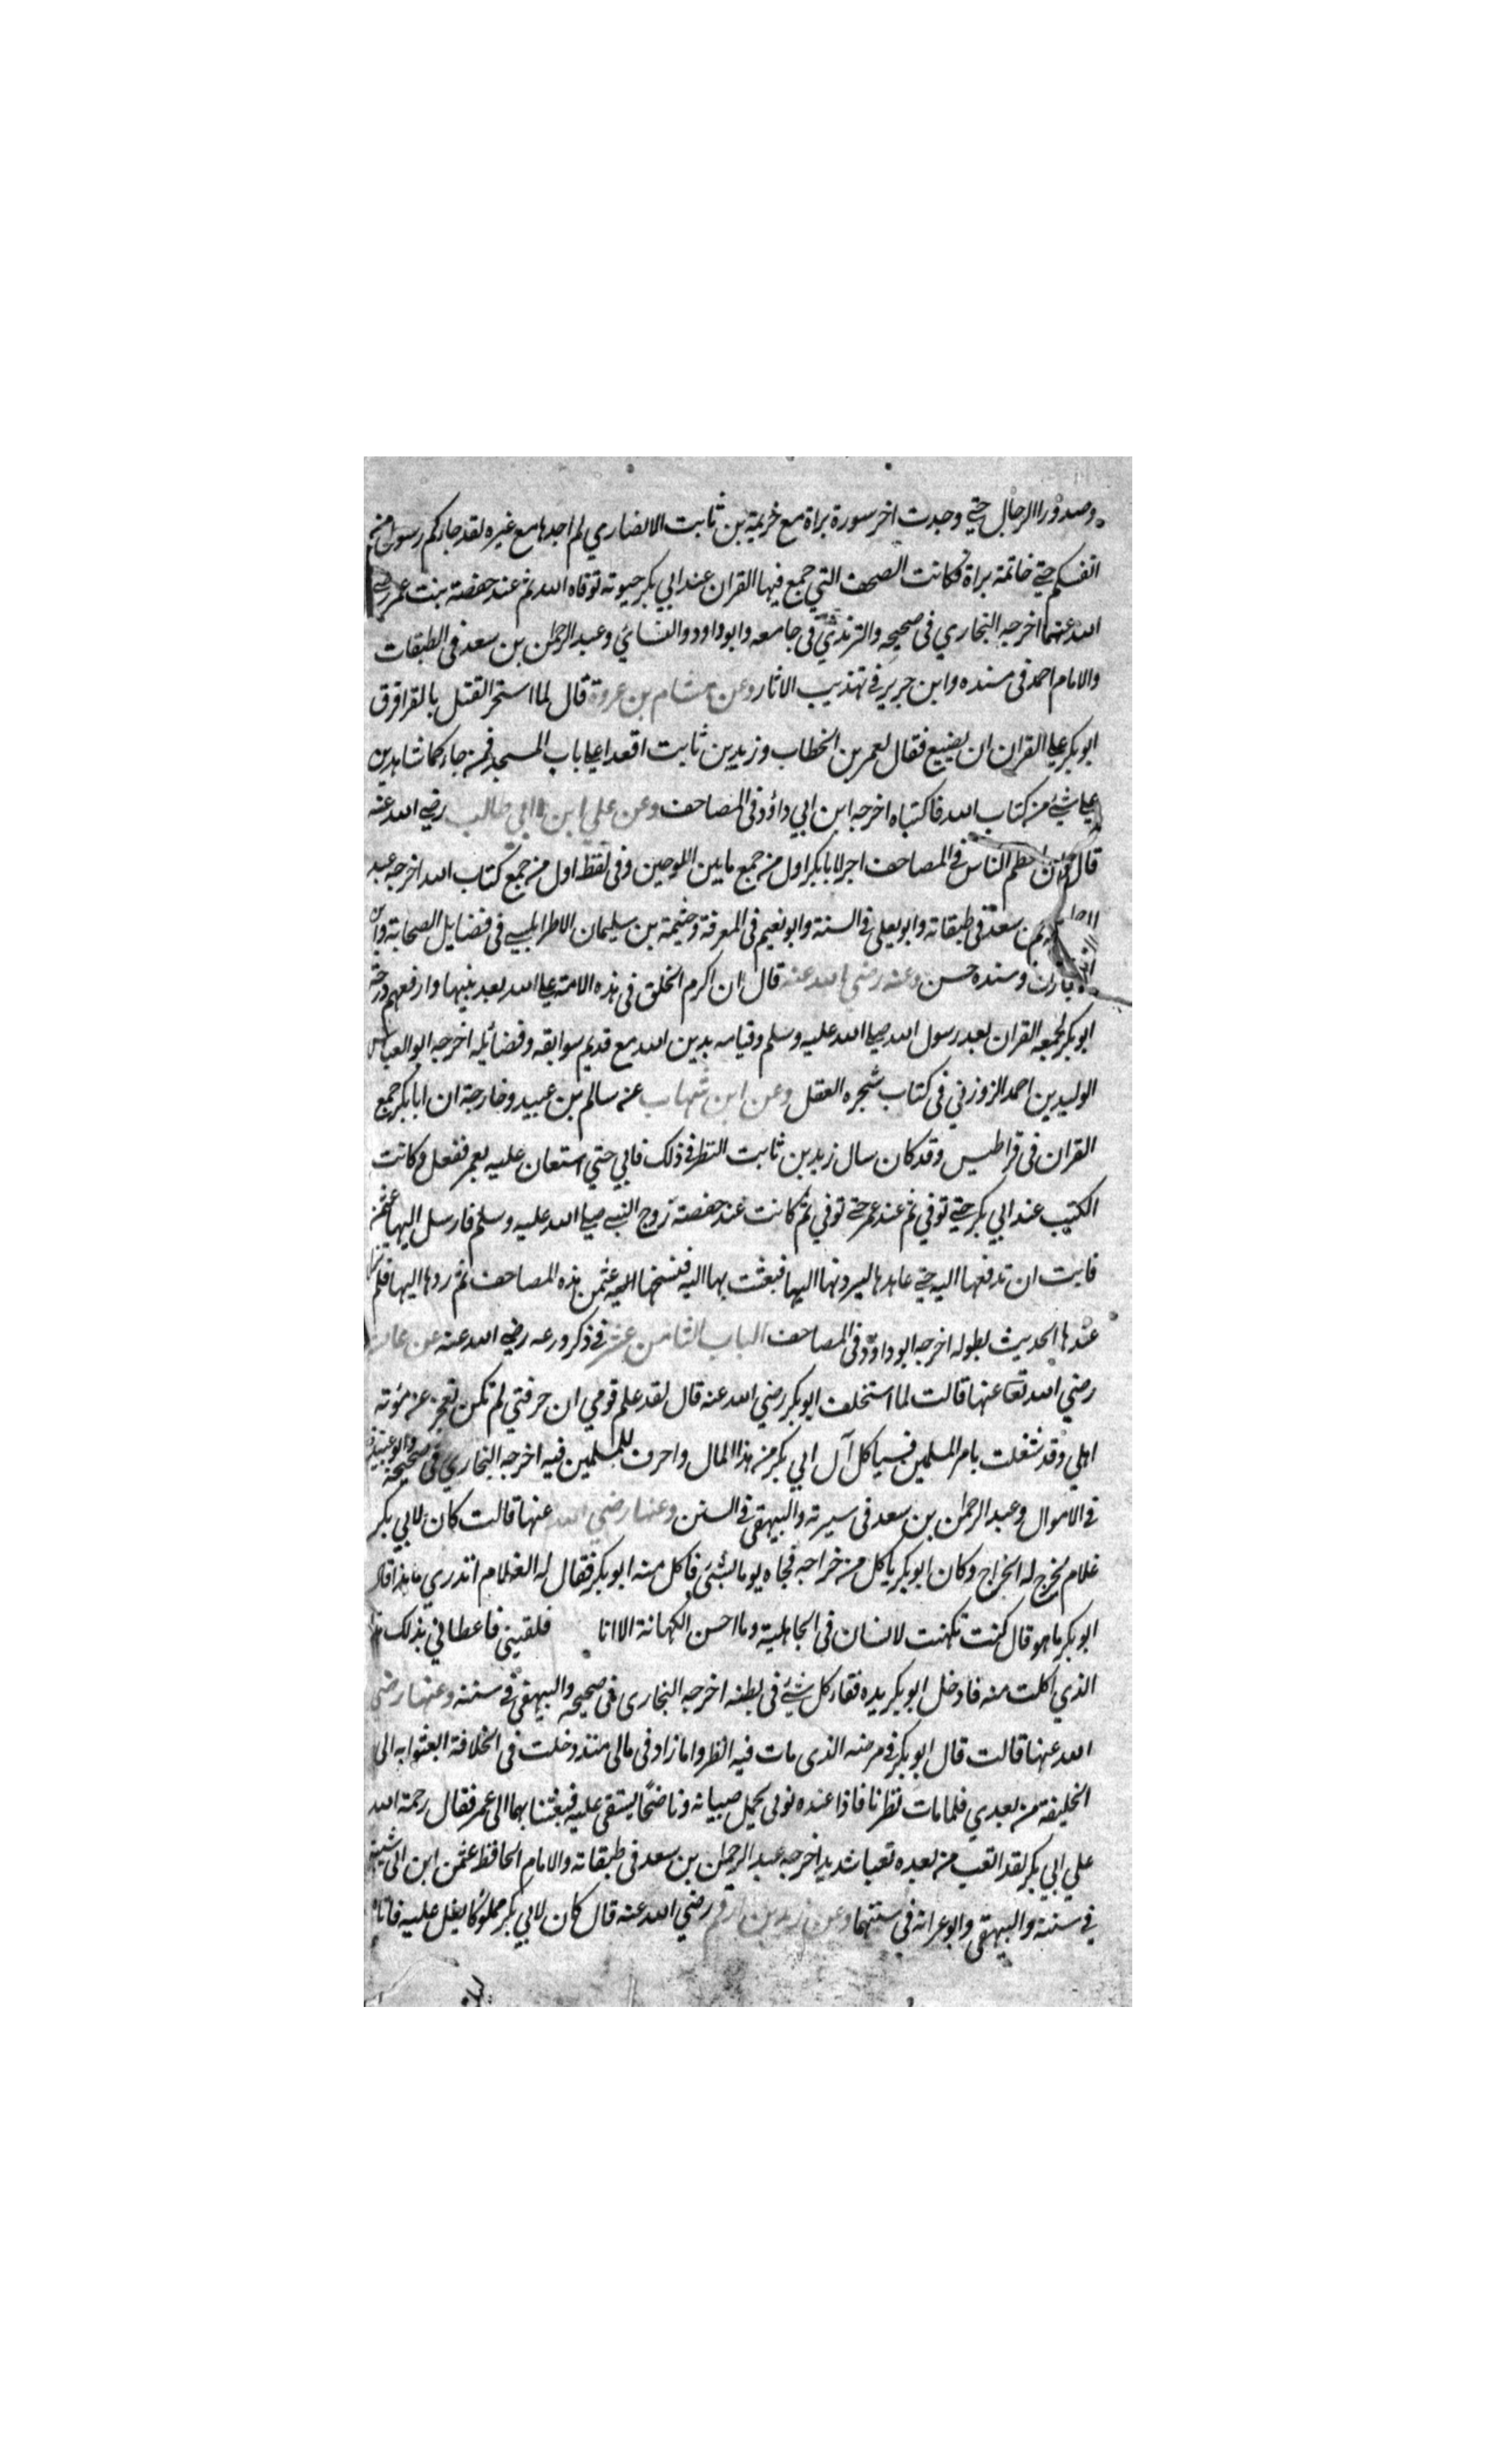 وصدور الرجال حتي وجدت اخر سورة براة مع خزيمة بن ثابت الانصاري لم اجدها مع غيره لقد جاءكم رسول من
انفسكم حتي خاتمة براة فكانت الصحف التي جمع فيها القران عند ابي بكر حيوته توفاه الله ثم عند حفصة بنت عمر رضي
الله عنهما اخرجه البخاري في صحيحه والترمذي في جامعه وابو داود والنسائي وعبد الرحمن بن سعد في الطبقات
والامام احمد في مسنده وابن جرير في تهذيب الاثار وعن هشام بن عروة قال لما استحر القتل بالقرا فرق
ابو بكر علي القران ان يضيع فقال لعمر بن الخطاب وزيد بن ثابت اقعدا علي باب المسجد فمن جاءكما شاهدين
علي شئ من كتاب الله فاكتباه اخرجه ابن ابي داؤد في المصاحف وعن علي ابن ابي طالب رضي الله عنه
قال ان اعظم الناس في المصاحف اجرا لابابكر اول من جمع مابين اللوحين وفي لفظ اول من جمع كتاب الله اخرجه عبد
بن سعد في طبقاته وابو يعلي في السنة وابو نعيم في المعرفة وخيثمة بن سليمان الاطرابلسي في فضايل الصحابة وابن
وسنده حسن وعنه رضي الله عنه قال ان اكرم الخلق في هذه الامة علي الله بعد نبيها وارفعهم درجة
ابو بكر لجمعه القران بعد رسول الله صلي الله عليه وسلم وقيامه بدين الله مع قديم سوابقه وفضائله اخرجه ابو العباس
الوليد بن احمد الزوزني في كتاب شجره العقل وعن ابن شهاب عن سالم بن عبيد وخارجة ان ابابكر جمع
القران في قراطيس وقد كان سال زيد بن ثابت النظر في ذلك فابي حتي استعان عليه بعمر ففعل وكانت
الكتب عند ابي بكر حتي توفي ثم عند عمر حتي توفي ثم كانت عند حفصة زوج النبي صلي الله عليه وسلم فارسل اليها عثمن
فابت ان تدفعها اليه حتي عاهدها ليردنها اليها فبعثت بها اليه فنسخها عثمن هذه المصاحف ثم ردها اليها فلم
عندها الحديث بطوله اخرجه ابو داوود في المصاحف الباب الثامن عشر في ذكر ورعه رضي الله عنه عن
رضي الله تعا عنها قالت لما استخلف ابو بكر رضي الله عنه قال لقد علم قومي ان حرفتي لم تكن تعجز عن مؤنة
اهلي وقد شغلت بامر المسلمين فسياكل آل ابي بكر من هذا المال واحرف للمسلمين فيه اخرجه البخاري في صحيحه وابو عبيد
في الاموال وعبد الرحمن بن سعد في سيرته والبيهقي في السنن وعنها رضي الله عنها قالت كان لابي بكر
غلام يخرج له الخراج وكان ابو بكر ياكل من خراجه فجاه يوما بشئ فاكل منه ابو بكر فقال له الغلام اتدري ما هذا قال
ابو بكر ما هو قال كنت تكهنت لانسان في الجاهلية وما احسن الكهانة الا انا فلقيني فاعطاني بذلك هذا
الذي اكلت منه فادخل ابو بكر يده فقاء كل شئ في بطنه اخرجه البخاري في صحيحه والبيهقي في سننه وعنها رضي
الله عنها قالت قال ابو بكر في مرضه الذي مات فيه انظروا ما زاد في مالي منذ دخلت في الخلافة ابعثوا به الي
الخليفة من بعدي فلما مات نظرنا فاذا عنده نوبي يحمل صبيانه وناضحا يستقي عليه فبعثنا بهما الي عمر فقال رحمة الله
علي ابي بكر لقد اتعب من بعده تعبا شديدا اخرجه عبد الرحمن بن سعد في طبقاته والامام الحافظ عثمن ابن ابي شيبة
في سننه والبيهقي وابو عرانه في سننهما وعن زيد بن ارقم رضي الله عنه قال كان لابي بكر مملوكا يغل عليه فاتاه